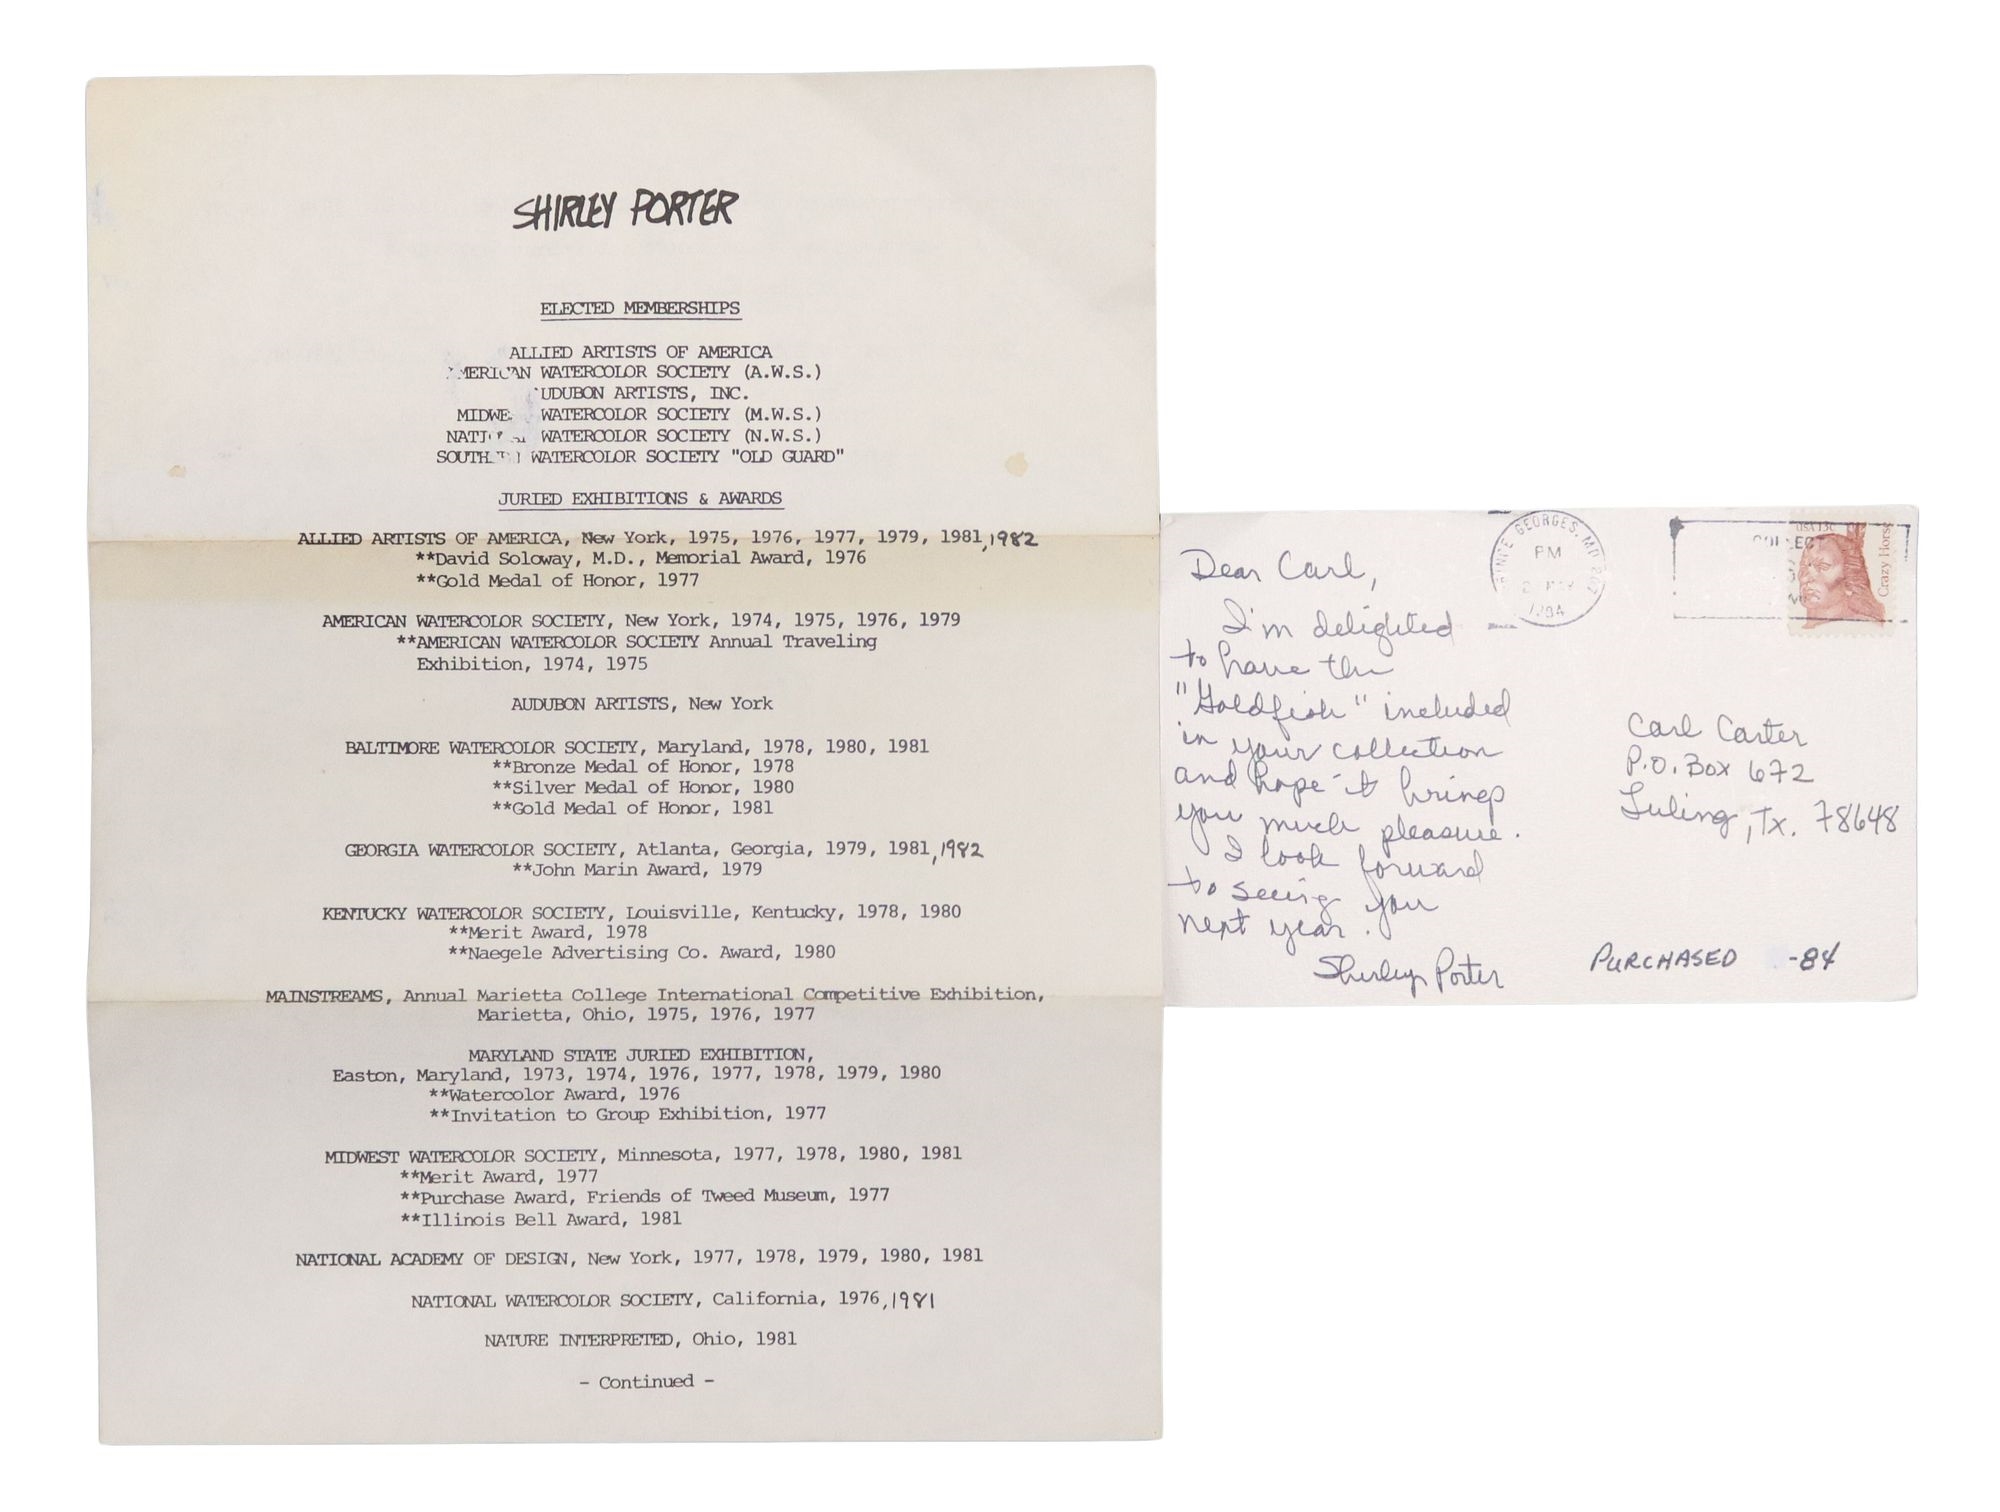 SHIRLEY PORTER
ELECTED MEMBERSHIPS
ALLIED ARTISTS OF AMERICA
WATERCOLOR SOCIETY (A.W.S.)
ARTISTS, INC.
WATERCOLOR SOCIETY (M.W.S.)
WATERCOLOR SOCIETY (N.W.S.)
WATERCOLOR SOCIETY "OLD GUARD"
JURIED EXHIBITIONS & AWARDS
ALLIED ARTISTS OF AMERICA, New York, 1975, 1976, 1977, 1979, 1981,1982
**David Soloway, M.D., Memorial Award, 1976
**Gold Medal of Honor, 1977
AMERICAN WATERCOLOR SOCIETY, New York, 1974, 1975, 1976, 1979
**AMERICAN WATERCOLOR SOCIETY Annual Traveling
Exhibition, 1974, 1975
AUDUBON ARTISTS, New York
BALTIMORE WATERCOLOR SOCIETY, Maryland, 1978, 1980, 1981
**Bronze Medal of Honor, 1978
**Silver Medal of Honor, 1980
**Gold Medal of Honor, 1981
GEORGIA WATERCOLOR SOCIETY, Atlanta, Georgia, 1979, 1981,1982
**John Marin Award, 1979
KENTUCKY WATERCOLOR SOCIETY, Louisville, Kentucky, 1978, 1980
**Merit Award, 1978
**Naegele Advertising Co. Award, 1980
MAINSTREAMS, Annual Marietta College International Competitive Exhibition,
Marietta, Ohio, 1975, 1976, 1977
MARYLAND STATE JURIED EXHIBITION,
Easton, Maryland, 1973, 1974, 1976, 1977, 1978, 1979, 1980
**Watercolor Award, 1976
**Invitation to Group Exhibition, 1977
MIDWEST WATERCOLOR SOCIETY, Minnesota, 1977, 1978, 1980, 1981
**Merit Award, 1977
**Purchase Award, Friends of Tweed Museum, 1977
**Illinois Bell Award, 1981
NATIONAL ACADEMY OF DESIGN, New York, 1977, 1978, 1979, 1980, 1981
NATIONAL WATERCOLOR SOCIETY, California, 1976,1981
NATURE INTERPRETED, Ohio, 1981
- Continued -
Dear Carl,
I'm delighted
to have the
"Goldfish" included
in your collection
and hope it brings
you much pleasure.
I look forward
to seeing you
next year.
Shirley Porter
GEORGES, MD
PM
1984
USA 13c
Crazy Horse
Carl Carter
P.O. Box 672
Luling, Tx. 78648
PURCHASED -84